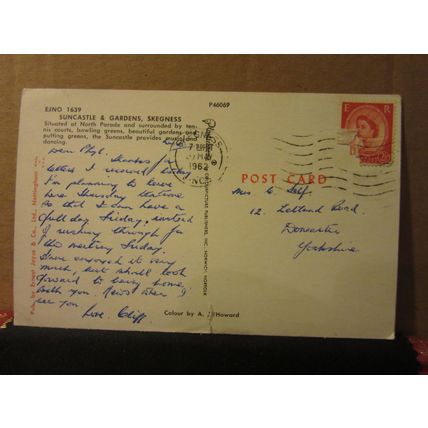 EJNO 1639
SUNCASTLE & GARDENS, SKEGNESS
Situated at North Parade and surrounded by ten-
nis courts, bowling greens, beautiful gardens and
putting greens, the Suncastle provides music and
dancing.
P46069
Dear Phyl.
Thanks for
letters I received today
I'm planning to leave
here Thursday
so that I can have a
full day Friday, instead
I rushing through for
the meeting Friday.
Have enjoyed it very
much, but shall look
forward to being home
with you. News when I
see you
Love. Cliff
Pub. by Bruce Jayne & Co., Ltd., Nottingham
Colour by A. Howard
E R
1962
POST CARD
Mrs. C. Self.
12. Lelland Road.
Doncaster
Yorkshire.